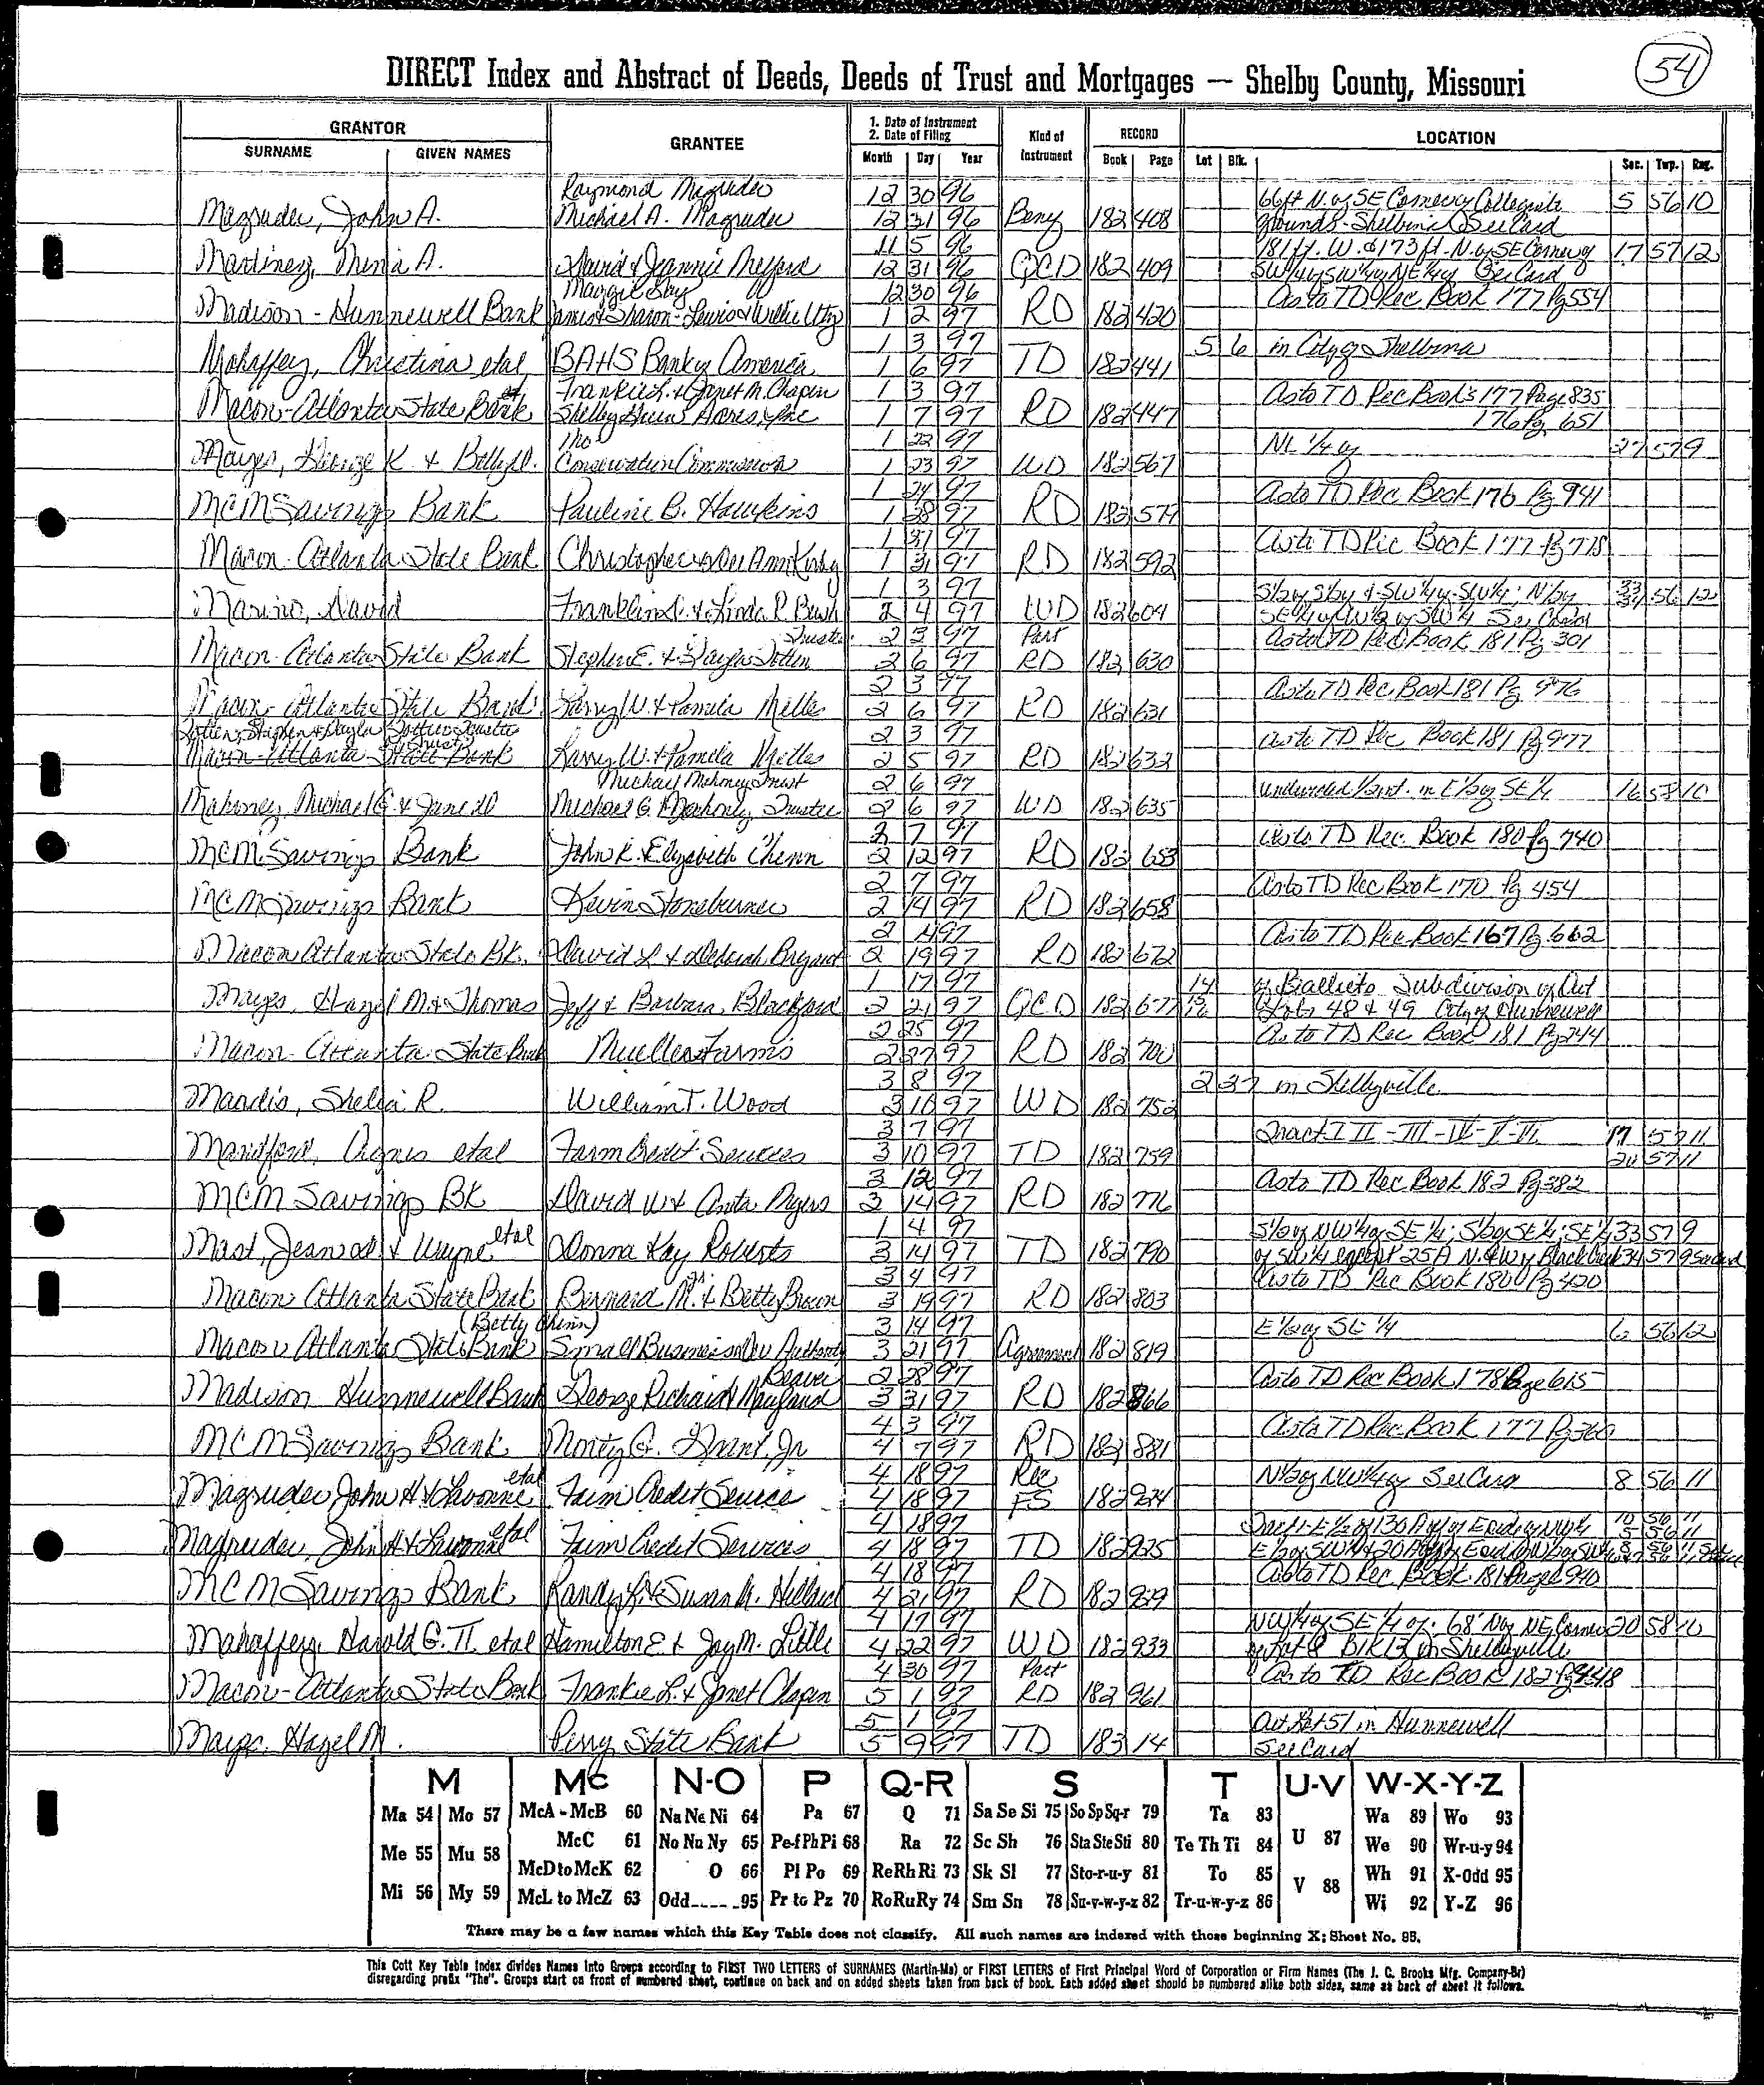 54
DIRECT Index and Abstract of Deeds, Deeds of Trust and Mortgages — Shelby County, Missouri
GRANTOR
SURNAME GIVEN NAMES
GRANTEE
1. Date of Instrument
2. Date of Filing
Month Day Year
Kind of Instrument
RECORD
Book Page
LOCATION
Lot Blk. Sec. Twp. Rng.
Raymond Magruder 12 30 96 66 ft N. of SE Corner of Collegiate 5 56 10
Magruder, John A. Michael A. Magruder 12 31 96 Beny 182 408 Grounds - Shelbina See Card
11 5 96 181 ft. W. & 173 ft. N. of SE Corner of 17 57 12
Martinez, A. David & Jeannie 12 31 96 QCD 182 409 SW 1/4 of SW 1/4 of NE 1/4 See Card
Maggie 12 30 96 As to TD Rec Book 177 Pg 554
Madison - Hunnewell Bank James & Sharon - Lewis & Willie Utz 1 2 97 RD 182 420
1 3 97 5 6 in City of Shelbina
Mahaffey, Christina etal BAHS Bank of America 1 6 97 TD 182 441
Frankie L. & Janet M. Chapin 1 3 97 As to TD Rec Book's 177 Page 835
Macon-Atlanta State Bank Shelby Acres, Inc 1 7 97 RD 182 447 176 Pg 651
Mo 1 22 97 NE 1/4 of 27 57 9
Mayes, George K & Betty D. Conservation Commission 1 23 97 WD 182 567
1 24 97 As to TD Rec Book 176 Pg 941
MCM Savings Bank Pauline B. Hawkins 1 28 97 RD 182 577
1 31 97 As to TD Rec Book 177 Pg 778
Macon-Atlanta State Bank Christopher & Dee Ann Kirby 1 31 97 RD 182 592
1 3 97 S 1/2 of S 1/2 of & SW 1/4 of SW 1/4; N 1/2 of 33 56 12
Marino, David Franklin D. & Linda R. Bush 2 4 97 WD 182 604 SE 1/4 of SW 1/4 See Card
Trustee 2 3 97 Part As to TD Rec Book 181 Pg 301
Macon-Atlanta State Bank Stephen E. & Gayla Totten 2 6 97 RD 182 630
2 3 97 As to TD Rec Book 181 Pg 976
Macon-Atlanta State Bank Larry W. & Pamela Miller 2 6 97 RD 182 631
Totten, Stephen & Gayla Totten Trustee 2 3 97 As to TD Rec Book 181 Pg 977
Macon-Atlanta State Bank Larry W. & Pamela Miller 2 5 97 RD 182 632
Michael Mahoney Trust 2 6 97 undivided 1/2 int. in E 1/2 of SE 1/4 16 58 10
Mahoney, Michael G. & Jane D Michael G. Mahoney, Trustee 2 6 97 WD 182 635
2 7 97 As to TD Rec. Book 180 Pg 740
MCM Savings Bank John R. Elizabeth Chinn 2 12 97 RD 182 653
2 7 97 As to TD Rec Book 170 Pg 454
MCM Savings Bank Kevin Stoneburner 2 14 97 RD 182 658
2 4 97 As to TD Rec Book 167 Pg 662
Macon Atlanta State Bk. David L & Deborah Bryant 2 19 97 RD 182 672
1 17 97 14 of Subdivision of Out
Mayes, Hazel M. & Thomas Jeff & Barbara Blackford 2 21 97 QCD 182 677 Lots 48 & 49 City of Hunnewell
2 25 97 As to TD Rec Book 181 Pg 244
Macon-Atlanta State Bank Mueller Farms 2 27 97 RD 182 700
3 8 97 2 37 in Shelbyville
Mandis, Shelia R. William T. Wood 3 10 97 WD 182 752
3 7 97 Tract I II - III - IV - V - VI 17 57 11
Agnes etal Farm Credit Services 3 10 97 TD 182 759 20 57 11
3 12 97 As to TD Rec Book 182 Pg 382
MCM Savings BK David W & Anita Myers 3 14 97 RD 182 776
1 4 97 S 1/2 of NW 1/4 of SE 1/4; S 1/2 of SE 1/4; SE 1/4 33 57 9
Mast, Jean & Wayne etal Donna Kay Roberts 3 14 97 TD 182 790 of SW 1/4 except 25A N. & W of Black Creek 34 57 9 See Card
3 4 97 As to TD Rec Book 180 Pg 420
Macon Atlanta State Bank Bernard M. & Betty Brown 3 19 97 RD 182 803
(Betty Chinn) 3 14 97 E 1/2 of SE 1/4 6 56 12
Macon Atlanta State Bank Small Business Dev Authority 3 21 97 Agreement 182 819
Beaver 2 28 97 As to TD Rec Book 178 Page 615
Madison Hunnewell Bank George Richard & 3 31 97 RD 182 866
4 3 97 As to TD Rec Book 177 Pg 360
MCM Savings Bank Monty G. Jr 4 7 97 RD 182 881
4 18 97 Rec N 1/2 of NW 1/4 of See Card 8 56 11
Magruder, John H & Lavonne etal Farm Credit Service 4 18 97 FS 182 924
4 18 97 10 56 11
Magruder, John H & Lavonne etal Farm Credit Services 4 18 97 TD 182 925
4 18 97 As to TD Rec Book 181 Page 940
MCM Savings Bank Randy L. & Susan M. 4 21 97 RD 182 929
4 17 97 NW 1/4 of SE 1/4 of; 68' N of NE Corner 20 58 10
Mahaffey, Harold G. II etal Hamilton E. & Joy M. Little 4 22 97 WD 182 933 of Lot 8 Blk 12 in Shelbyville
4 30 97 Part As to TD Rec Book 182 Pg 448
Macon-Atlanta State Bank Frankie L. & Janet Chapin 5 1 97 RD 182 961
5 1 97 Out Lot 51 in Hunnewell
Mayes, Hazel M. Perry State Bank 5 9 97 TD 183 14 See Card
M Mc N-O P Q-R S T U-V W-X-Y-Z
Ma 54 Mo 57 McA - McB 60 Na Ne Ni 64 Pa 67 Q 71 Sa Se Si 75 So Sp Sq-r 79 Ta 83 U 87 Wa 89 Wo 93
Me 55 Mu 58 McC 61 No Nu Ny 65 Pe-f Ph Pi 68 Ra 72 Sc Sh 76 Sta Ste Sti 80 Te Th Ti 84 We 90 Wr-u-y 94
McD to McK 62 O 66 Pl Po 69 Re Rh Ri 73 Sk Sl 77 Sto-r-u-y 81 To 85 V 88 Wh 91 X-Odd 95
Mi 56 My 59 McL to McZ 63 Odd 95 Pr to Pz 70 Ro Ru Ry 74 Sm Sn 78 Su-v-w-y-z 82 Tr-u-w-y-z 86 Wi 92 Y-Z 96
There may be a few names which this Key Table does not classify. All such names are indexed with those beginning X; Sheet No. 95.
This Cott Key Table Index divides Names into Groups according to FIRST TWO LETTERS of SURNAMES (Martin-Ma) or FIRST LETTERS of First Principal Word of Corporation or Firm Names (The J. C. Brooks Mfg. Company-Br)
disregarding prefix "The". Groups start on front of numbered sheet, continue on back and on added sheets taken from back of book. Each added sheet should be numbered alike both sides, same as back of sheet it follows.